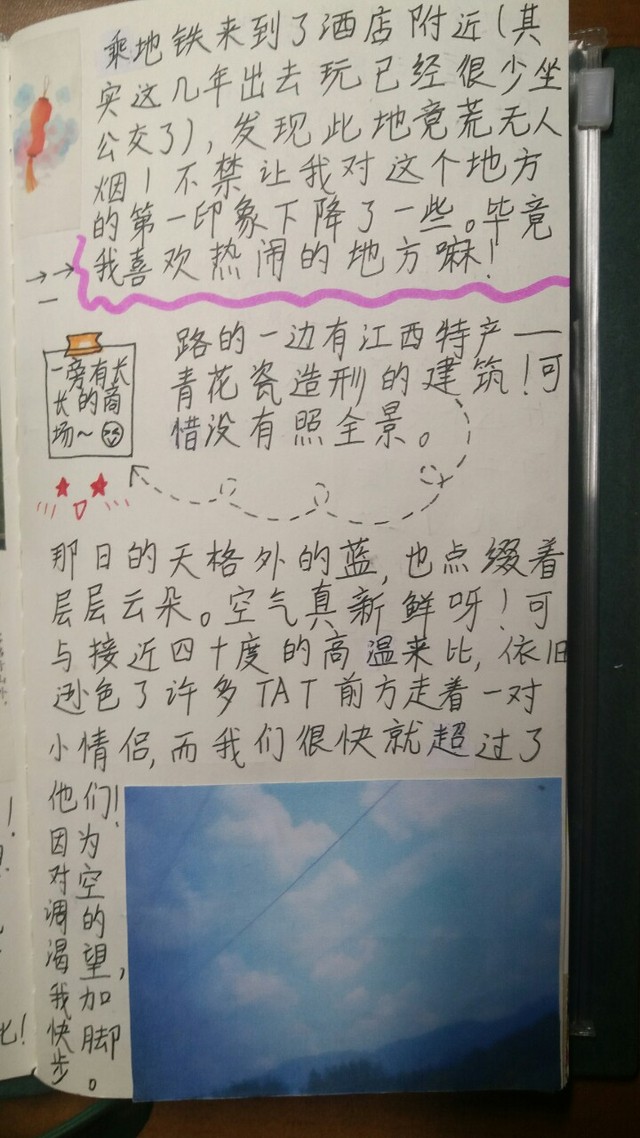 乘地铁来到了酒店附近(其
实这几年出去玩已经很少坐
公交了),发现此地竟荒无人
烟!不禁让我对这个地方
的第一印象下降了一些。毕竟
我喜欢热闹的地方嘛!
路的一边有江西特产一
青花瓷造形的建筑!可
惜没有照全景。
一旁有长
长的商
场~
那日的天格外的蓝,也点缀着
层层云朵。空气真新鲜呀!可
与接近四十度的高温来比,依旧
逊色了许多TAT前方走着一对
小情侣,而我们很快就超过了
他们!
因为
对空
调的
渴望,
我加
快脚
步。